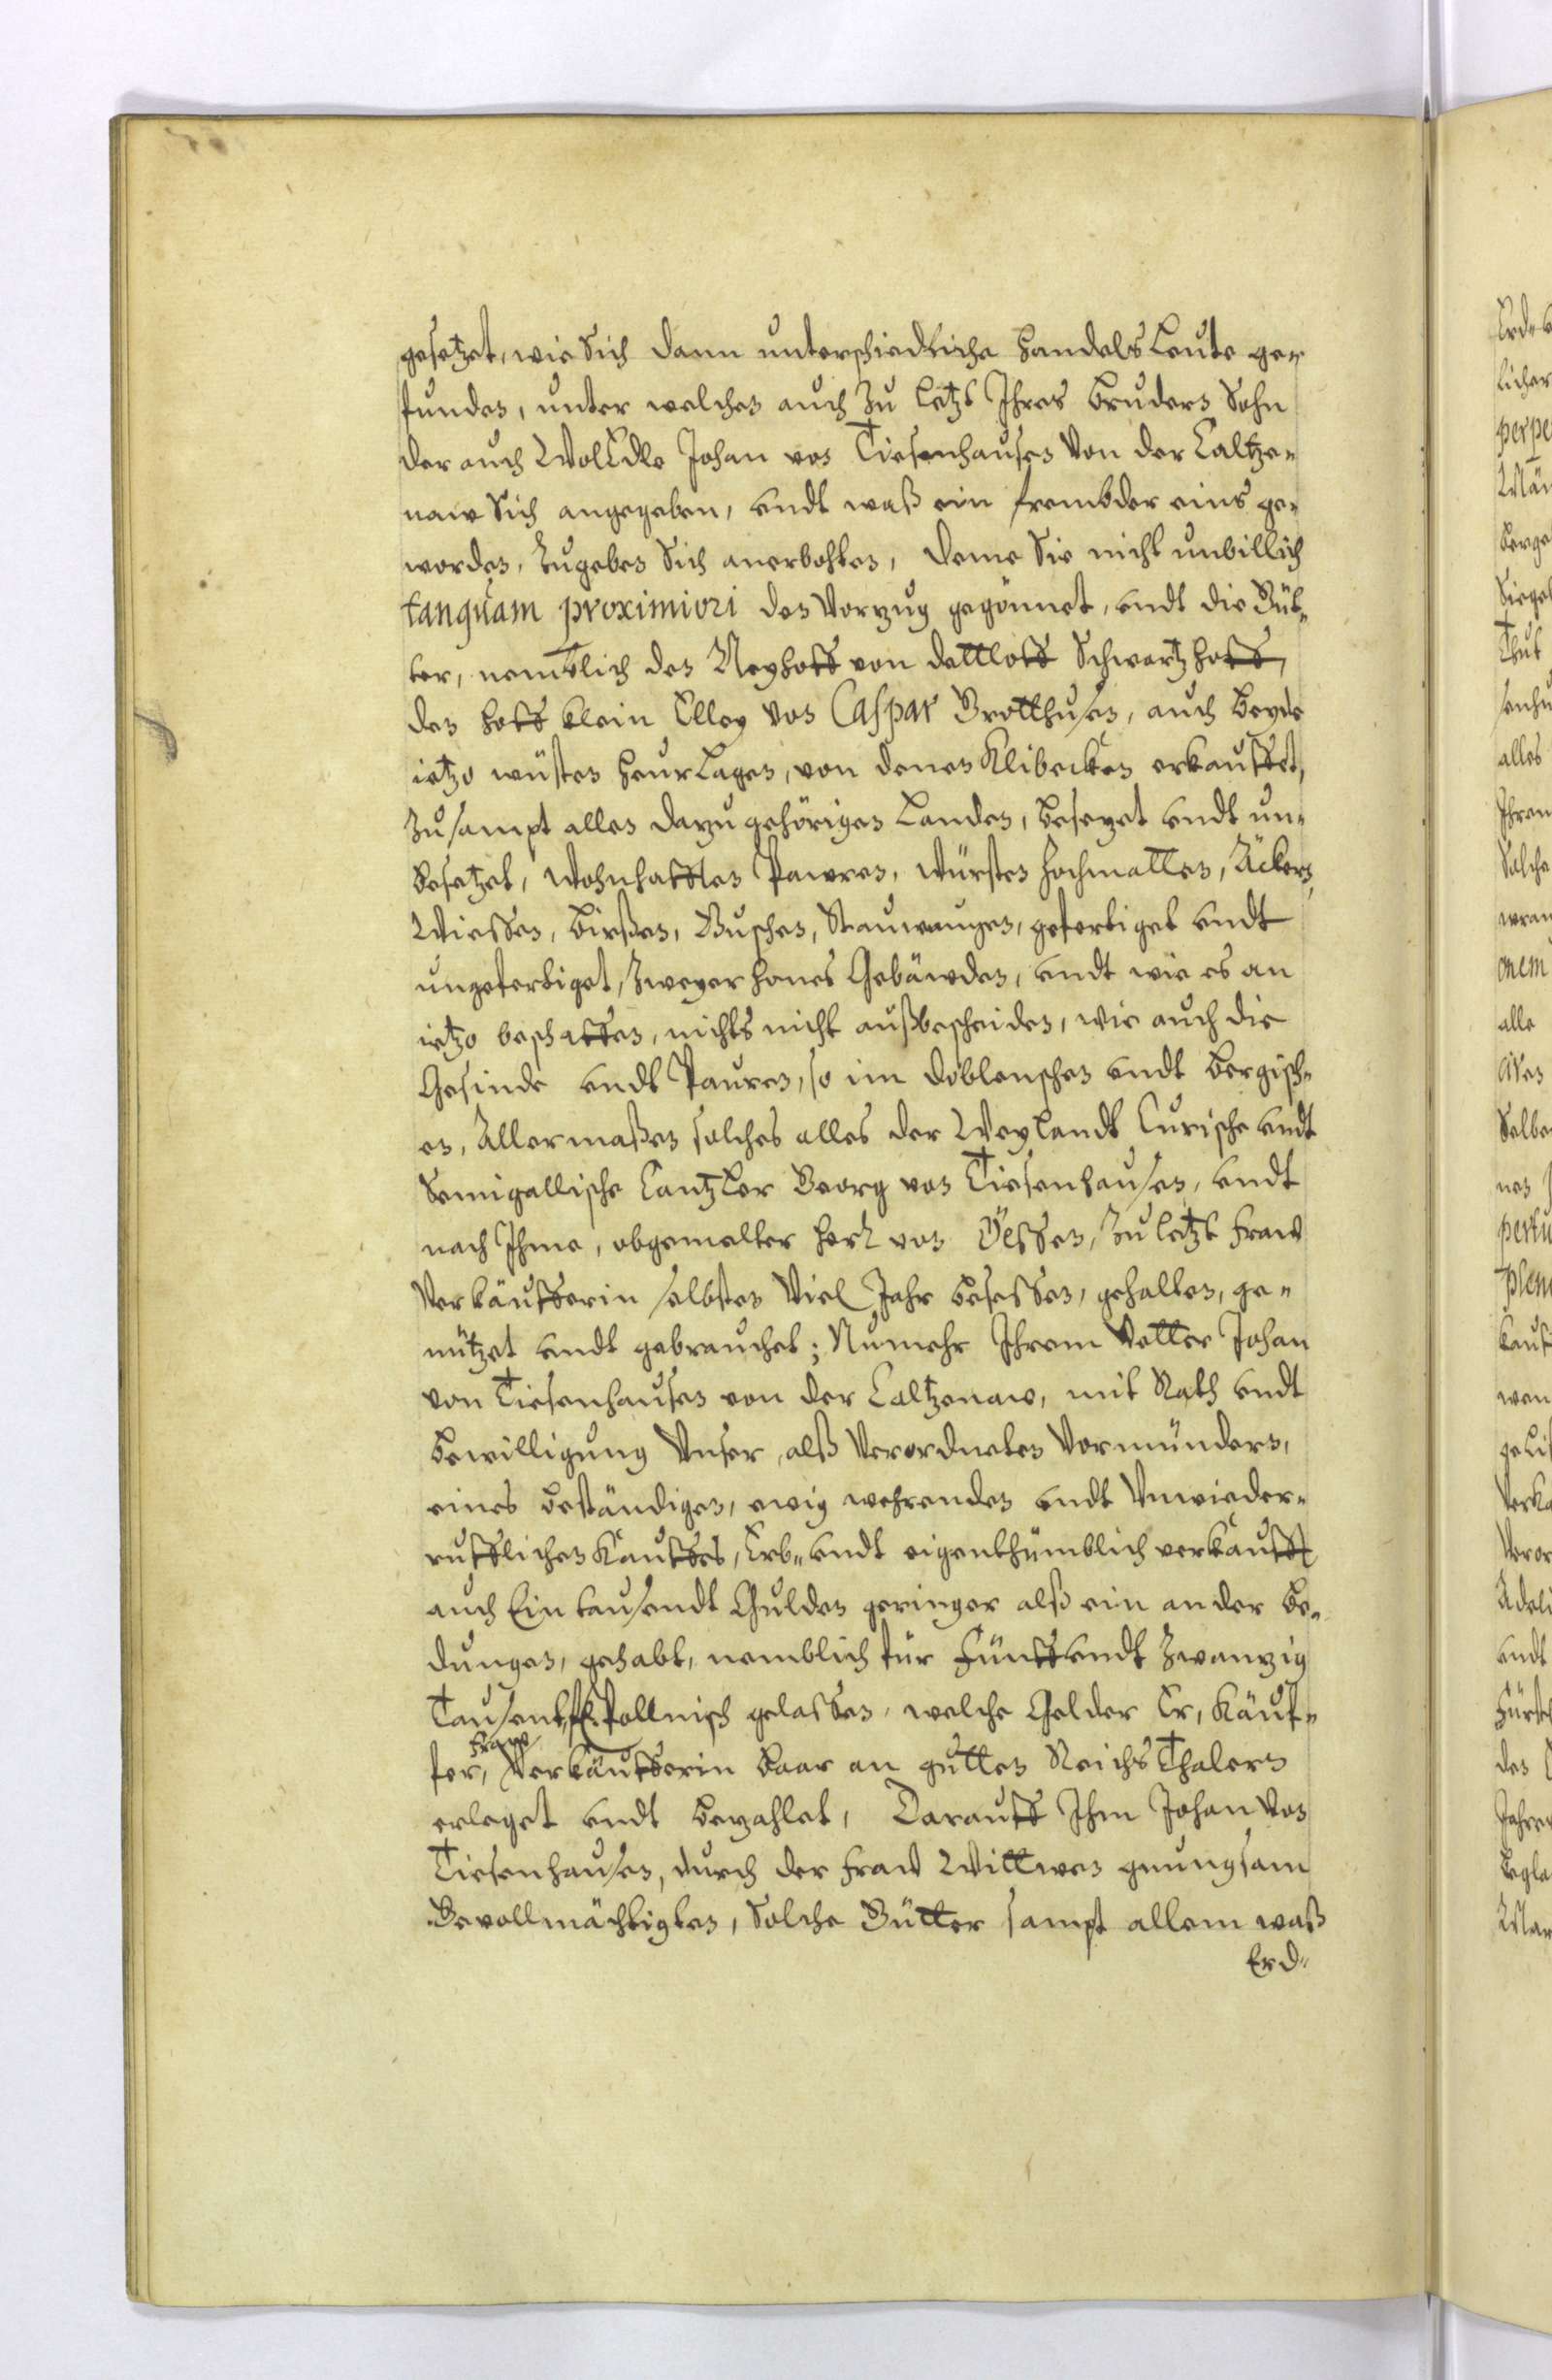 gesetzet, wie Sich dann unterschiedtliche Handels Leute ge-
funden, unter welchen auch zu letzt Ihres Bruders Sohn
der auch WolEdle Johan von Tiesenhausen von der Caltze-
naw Sich angegeben, undt waß ein frembder eins ge-
worden, Zugeben Sich anerbohten, deme Sie nicht unbillich
tanquam proximiori den Vorzug gegönnet, undt die Güt-
ter, nemblich den Neyhoff von dettloff Schwartzhoff,
den Hoff klein Elley von Caspar Grotthusen, auch beyde
ietzo wüsten HeurLagen, von denen Klibecken erkauffet,
Zusampt allen dazu gehörigen Landen, besezet undt un-
besetzet, Wohnhafften Pawren, Würsten Hochmatten, Äckern,
Wiessen, birßen, Buschen, Stauwungen, gefertiget undt
ungefertiget, Zweyer Hones Gebäwden, undt wie es an
ietzo beschaffen, nichts nicht außbescheiden, wie auch die
Gesinde undt Pauren, so im doblenschen undt bergisch-
en, Allermaßen solches alles der Weylandt Curische undt
Semigallische Cantzler Georg von Tiesenhausen, undt
nach Ihme, obgemelter Her von Ölssen, Zu letzt Fraw
Verkäufferin selbsten Viel Jahr besessen, gehalten, ge-
nützet undt gebrauchet; Numehr Ihrem Vetter Johan
von Tiesenhausen von der Caltzenaw, mit Rath undt
bewilligung Unser, alß Verordneten Vormündern,
eines beständigen, ewig wehrenden undt Unwieder-
rufflichen Kauffes, Erb- undt eigenthümblich verkaufft
auch Ein tausendt Gulden geringer alß ein ander be-
dungen, gehabt, nemblich für Fünff undt Zwanzig
Tausent fl. Pollnisch gelassen, welche Gelder Er, Käuf-
fer, Fraw Verkäufferin baar an gutten Reichs Thalern
erleget undt bezahlet, Darauff Ihm Johan von
Tiesenhausen, durch der Fraw Wittwen gnungsam
Bevollmächtigten, Solche Gütter sampt allem waß
Erd-